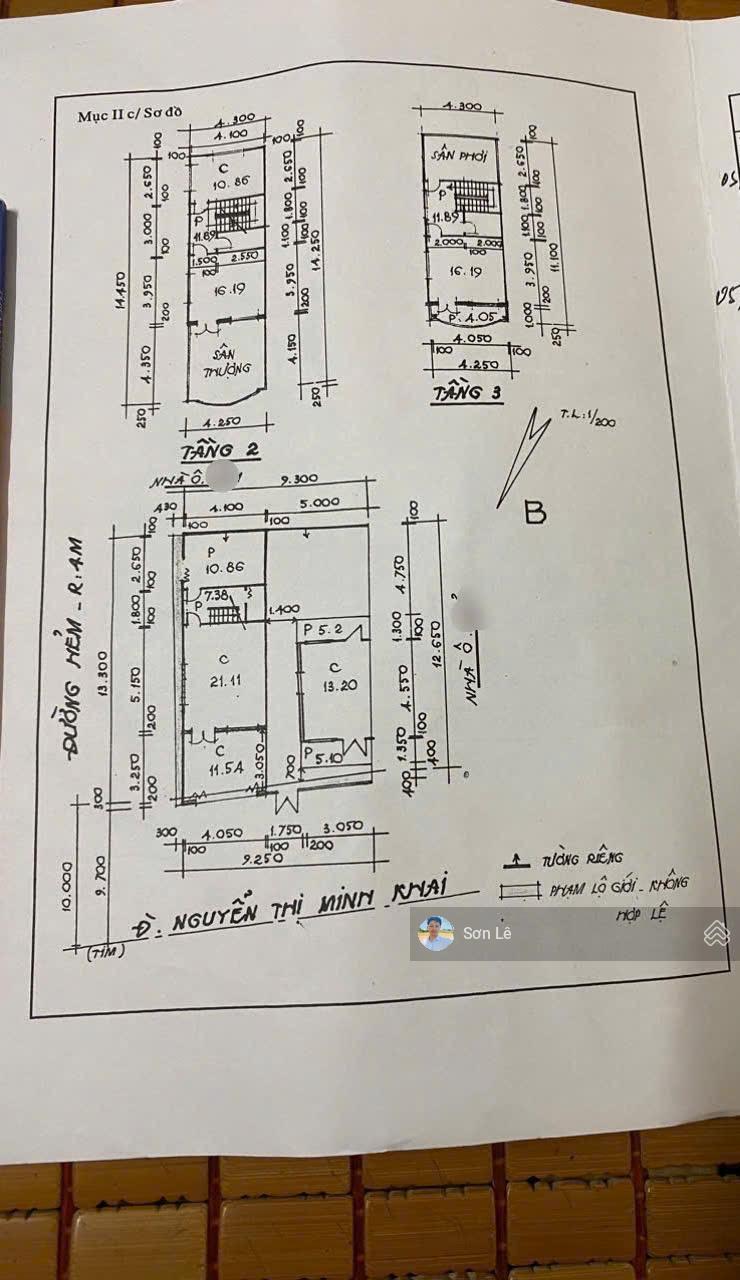 Mục II c/ Sơ đồ
4.300
4.100
100
100
100
C
10.86
2.650
100
2.650
100
P
11.89
3.000
1.800
100
1.100
100
14.250
1.500
2.550
100
100
14.450
16.19
3.950
3.950
200
200
SÂN
THƯỢNG
4.350
4.150
250
250
4.250
TẦNG 2
4.300
SÂN PHƠI
100
2.650
100
P
11.89
1.800
100
1.100
2.000
2.000
100
16.19
3.950
11.100
200
P. 4.05
1.000
250
4.050
100
100
4.250
TẦNG 3
T.L: 1/200
B
NHÀ Ô.
9.300
430
4.100
5.000
100
100
100
100
P
10.86
2.650
100
4.750
7.38
P
1.800
100
1.400
P 5.2
1.300
100
12.650
ĐƯỜNG HẺM - R: 4M
13.300
C
21.11
5.150
C
13.20
4.550
NHÀ Ô.
200
100
C
11.54
3.250
3.050
P 5.10
1.350
700
400
100
200
300
300
4.050
1.750
3.050
100
100
200
9.250
10.000
9.700
(TIM)
Đ. NGUYỄN THỊ MINH KHAI
TƯỜNG RIÊNG
PHẠM LỘ GIỚI - KHÔNG
HỢP LỆ
Sơn Lê